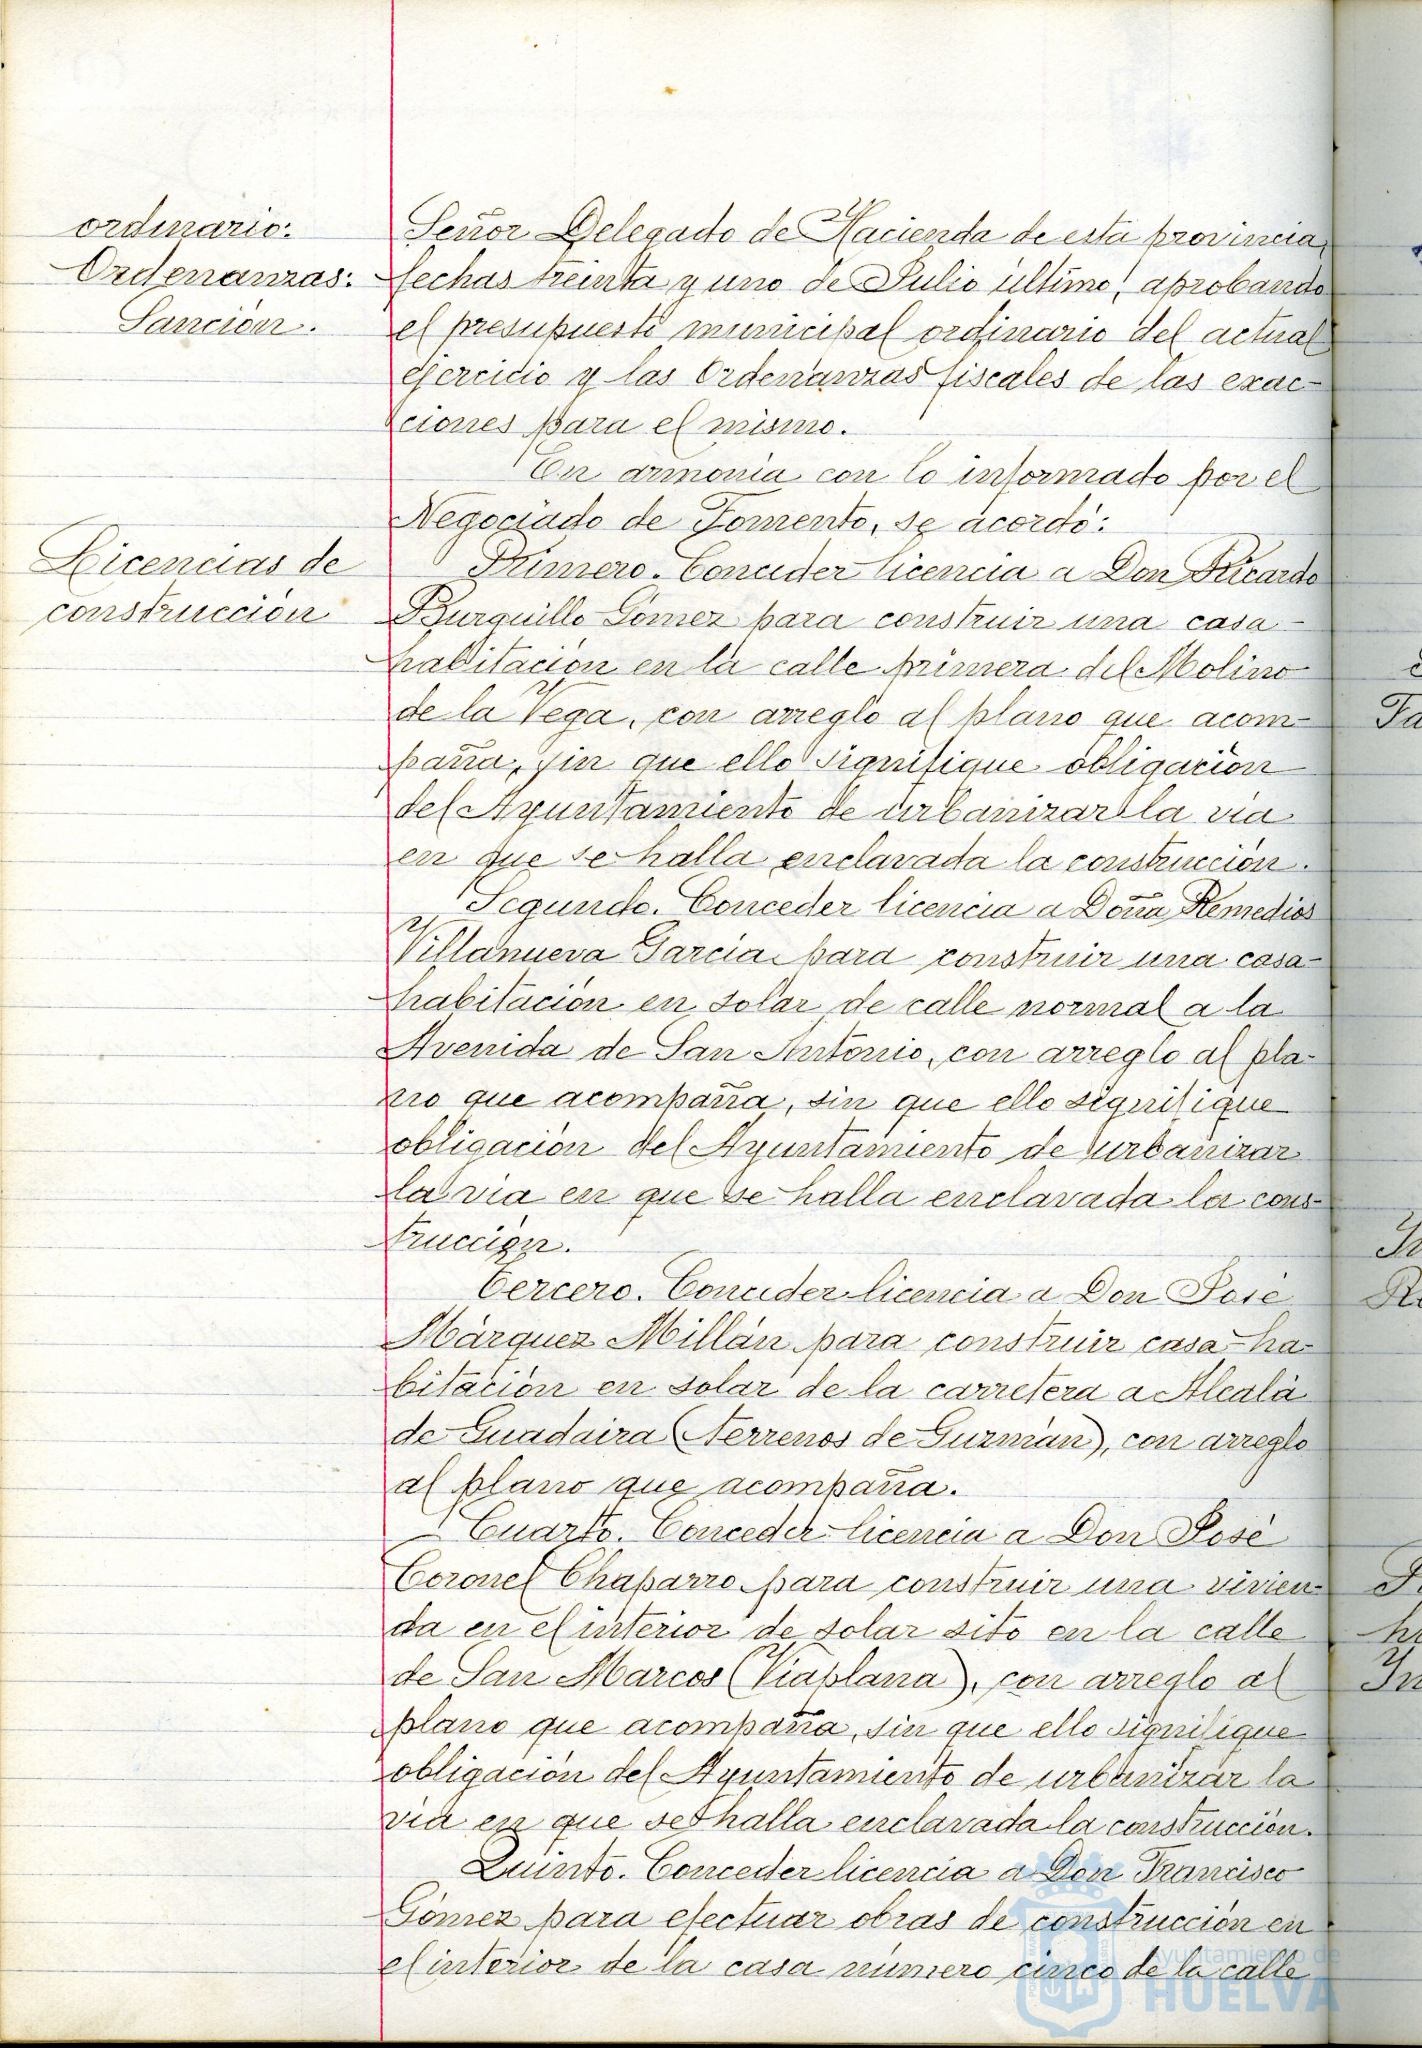 ordinario:
Ordenanzas:
Sanción.
Señor Delegado de Hacienda de esta provincia,
fechas treinta y uno de Julio último, aprobando
el presupuesto municipal ordinario del actual
ejercicio y las Ordenanzas fiscales de las exac-
ciones para el mismo.
En armonía con lo informado por el
Negociado de Fomento, se acordó:
Licencias de
construcción
Primero. Conceder licencia a Don Ricardo
Burquillo Gómez para construir una casa-
habitación en la calle primera del Molino
de la Vega, con arreglo al plano que acom-
paña, sin que ello signifique obligación
del Ayuntamiento de urbanizar la vía
en que se halla enclavada la construcción.
Segundo. Conceder licencia a Doña Remedios
Villanueva García para construir una casa-
habitación en solar de calle normal a la
Avenida de San Antonio, con arreglo al pla-
no que acompaña, sin que ello signifique
obligación del Ayuntamiento de urbanizar
la vía en que se halla enclavada la cons-
trucción.
Tercero. Conceder licencia a Don José
Márquez Millán para construir casa-ha-
bitación en solar de la carretera a Alcalá
de Guadaira (terrenos de Guzmán), con arreglo
al plano que acompaña.
Cuarto. Conceder licencia a Don José
Coronel Chaparro para construir una vivien-
da en el interior de solar sito en la calle
de San Marcos (Viaplana), con arreglo al
plano que acompaña, sin que ello signifique
obligación del Ayuntamiento de urbanizar la
vía en que se halla enclavada la construcción.
Quinto. Conceder licencia a Don Francisco
Gómez para efectuar obras de construcción en
el interior de la casa número cinco de la calle
Ayuntamiento de
HUELVA